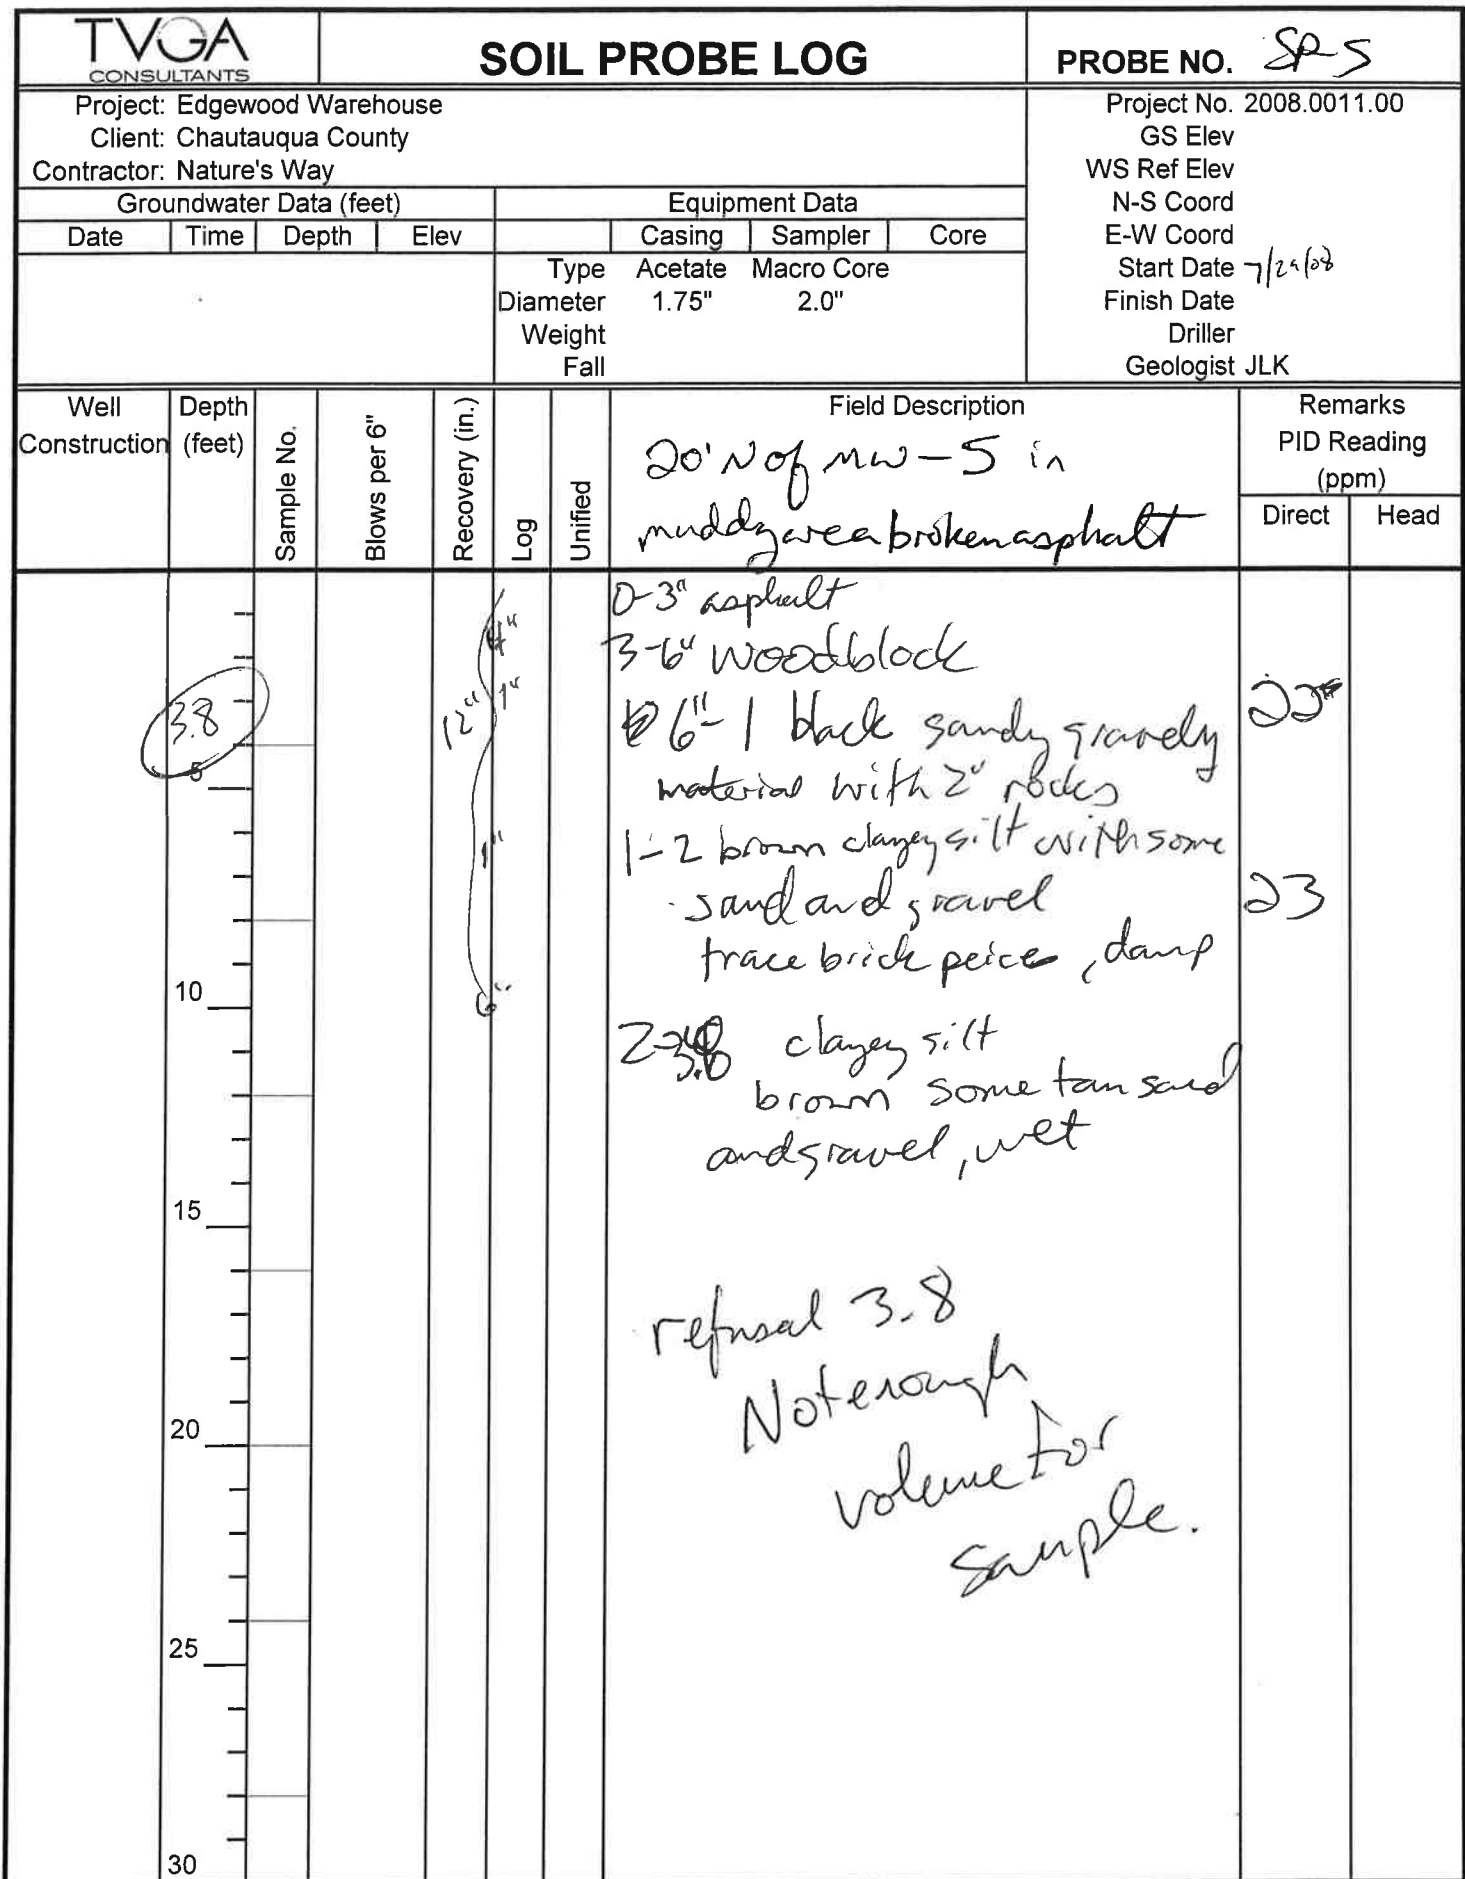 TVGA
CONSULTANTS
SOIL PROBE LOG
PROBE NO. SP-5
Project: Edgewood Warehouse
Client: Chautauqua County
Contractor: Nature's Way
Project No. 2008.0011.00
GS Elev
WS Ref Elev
N-S Coord
E-W Coord
Start Date 7/29/08
Finish Date
Driller
Geologist JLK
Groundwater Data (feet)
Equipment Data
Date Time Depth Elev
Casing Sampler Core
Type Acetate Macro Core
Diameter 1.75" 2.0"
Weight
Fall
Well Construction
Depth (feet)
Sample No.
Blows per 6"
Recovery (in.)
Log
Unified
Field Description
20' N of MW-5 in
muddy area broken asphalt
Remarks
PID Reading
(ppm)
Direct Head
0-3" asphalt
4"
3-6" woodblock
3.8
12"
1"
6"-1 black sandy gravely
22
material with 2" rocks
5
1-2 brown clayey silt with some
1"
sand and gravel
23
trace brick peices, damp
10
6"
2-3.8 clayey silt
brown some tan sand
and gravel, wet
15
refusal 3.8
Not enough
20
volume for
sample.
25
30